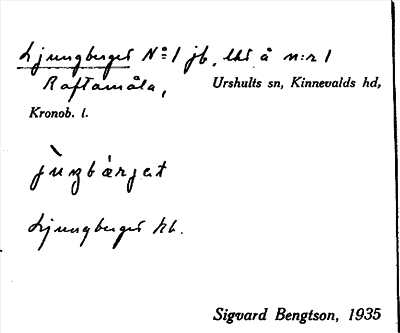 Ljungberget Nº 1 jb, lht å n:r 1
Raftamåla, Urshults sn, Kinnevalds hd,
Kronob. l.
Ljungberget kb.
Sigvard Bengtson, 1935